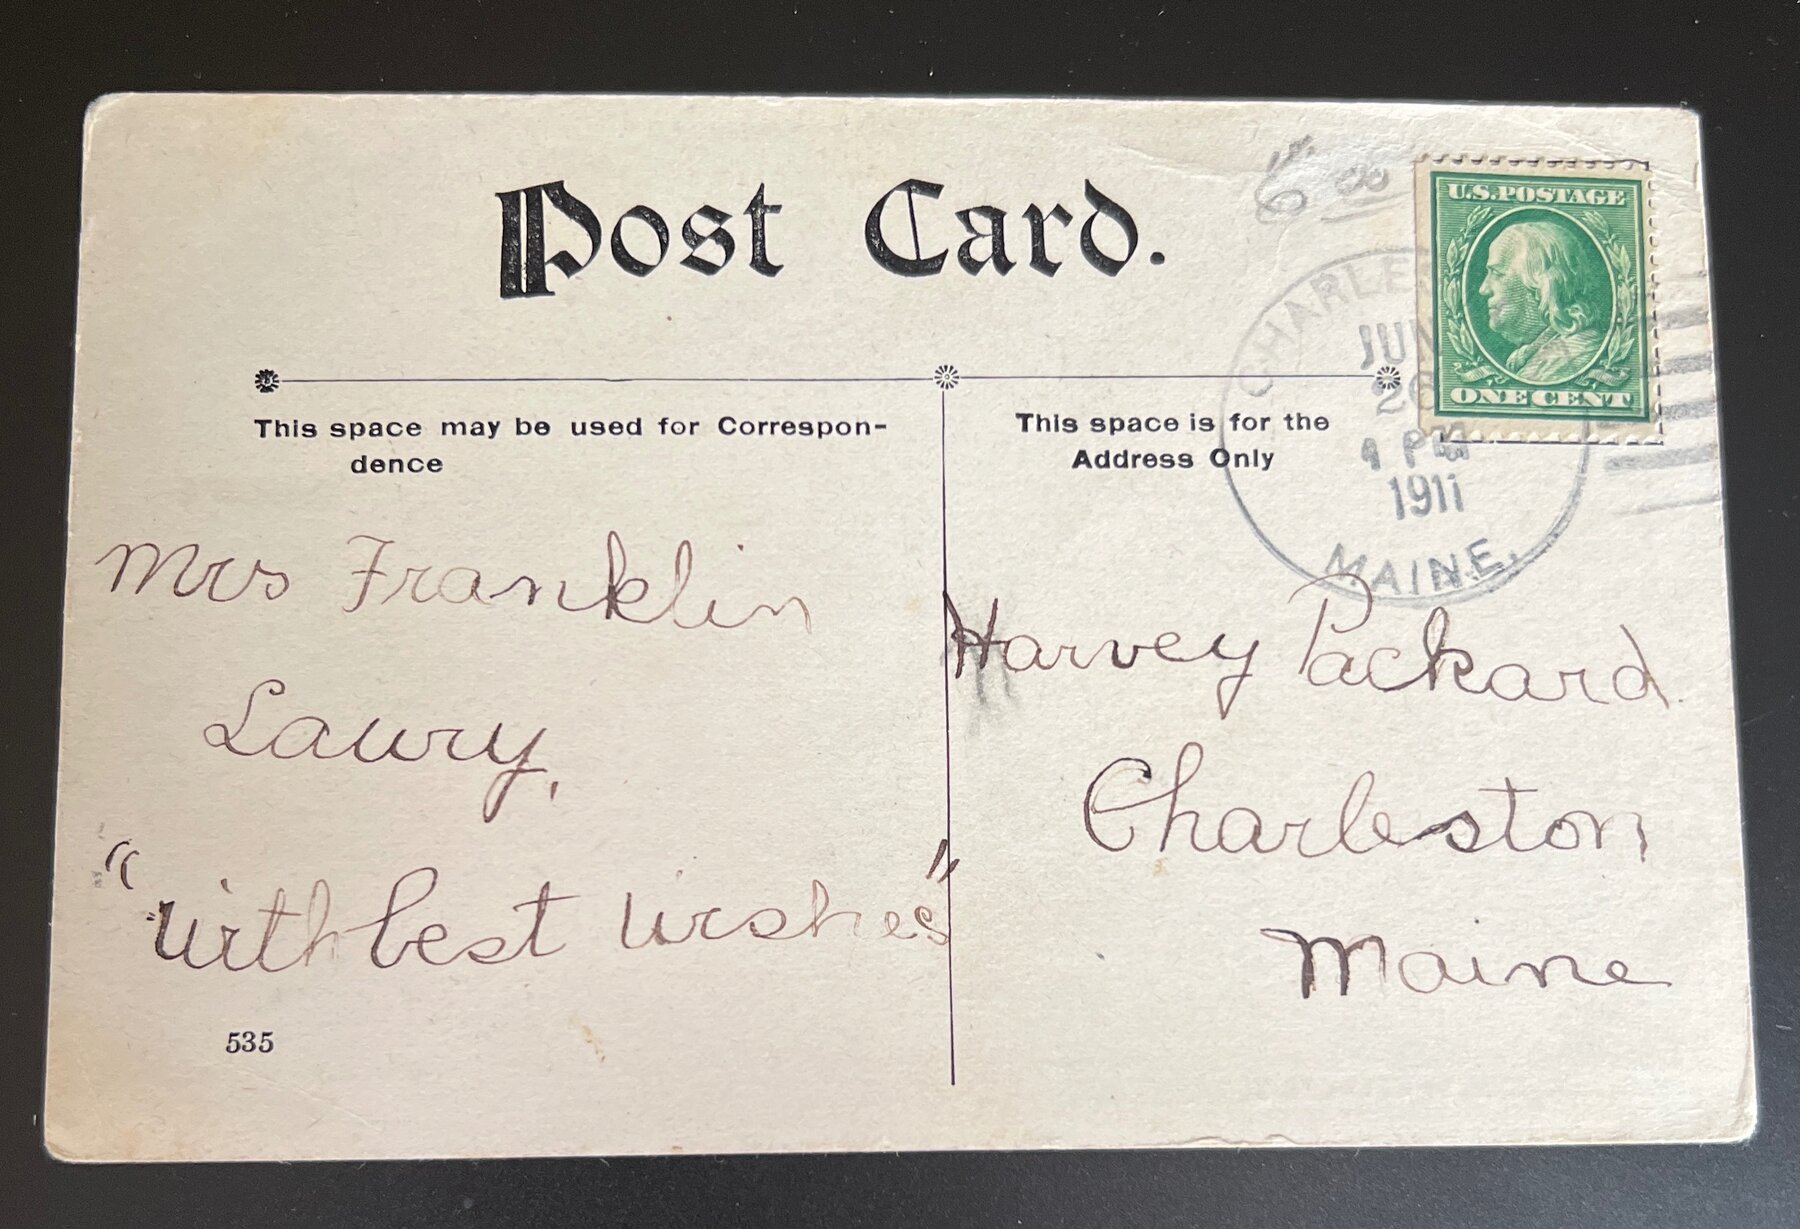 Post Card.
U.S. POSTAGE
ONE CENT
JUN
1911
MAINE.
This space may be used for Correspon-
dence
This space is for the
Address Only
Mrs Franklin
Lawry,
"With best Wishes"
535
Harvey Packard
Charleston
Maine